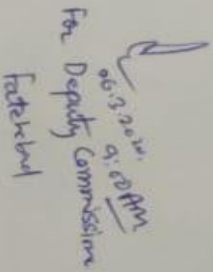 06.3.2020.
9:00 AM
For Deputy Commission
Fatehbad